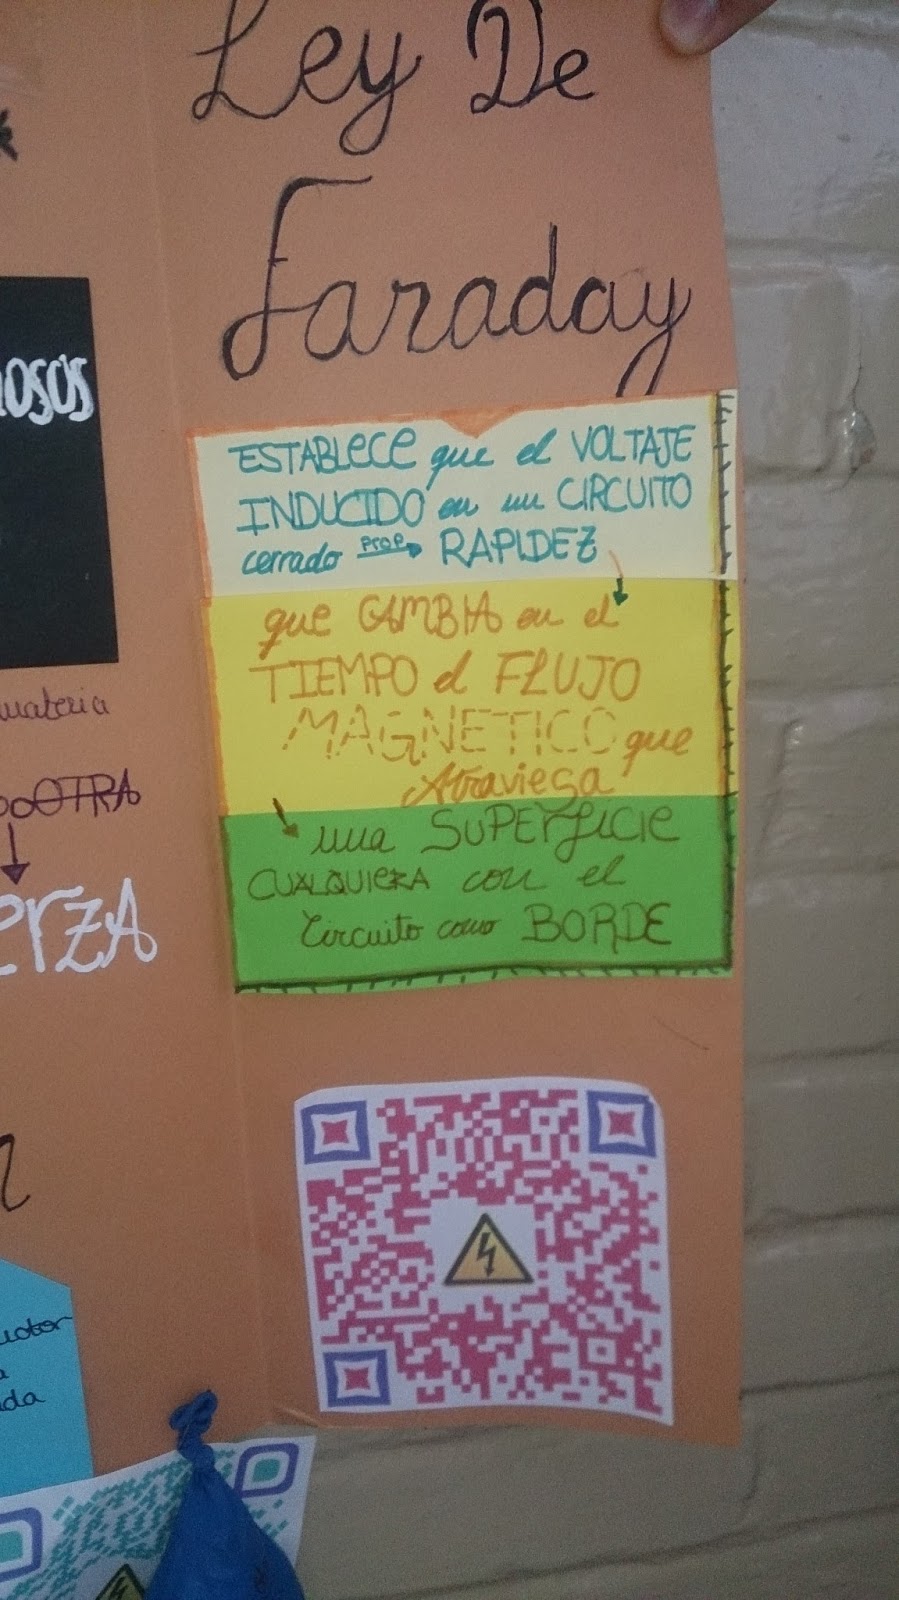 Ley De
Faraday
ESTABLECE que el VOLTAJE
INDUCIDO en un CIRCUITO
cerrado prop RAPIDEZ
que CAMBIA en el
TIEMPO el FLUJO
MAGNETICO que
Atraviesa
una SUPERFICIE
CUALQUIERA con el
Circuito como BORDE
materia
OTRA